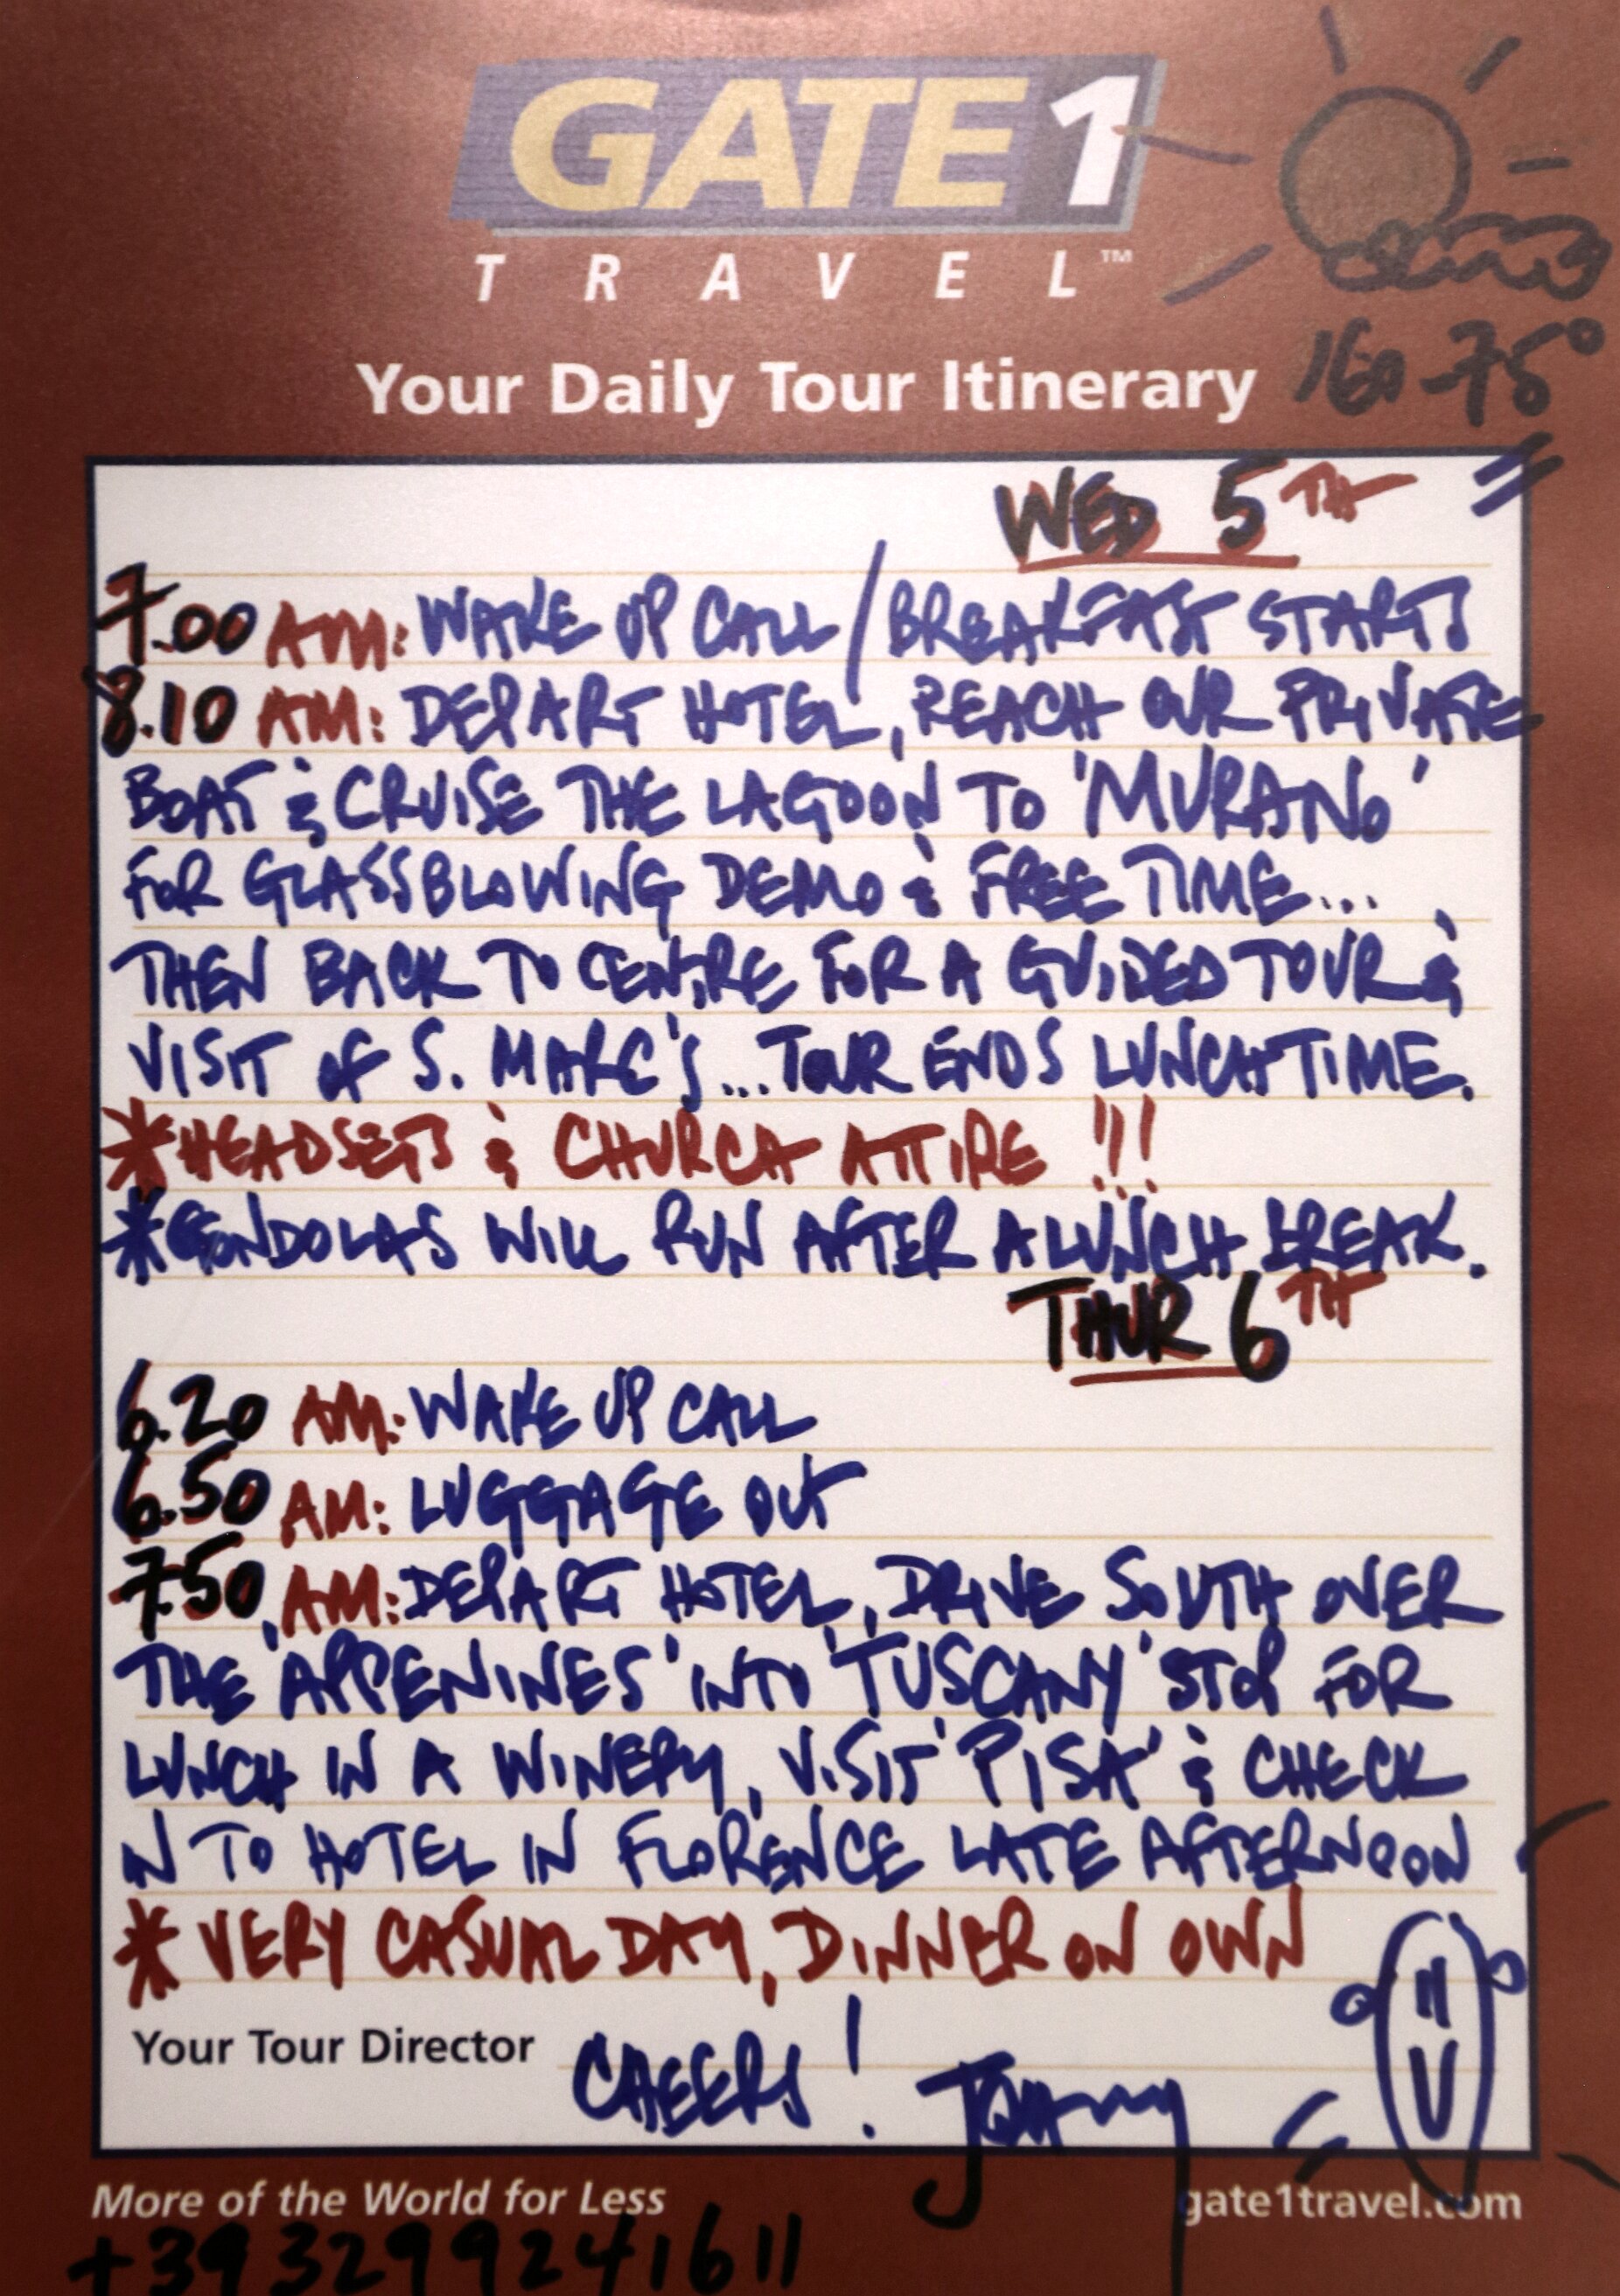 GATE 1
TRAVEL™
Your Daily Tour Itinerary
-75°
WED 5TH
7.00 AM: WAKE UP CALL / BREAKFAST STARTS
8.10 AM: DEPART HOTEL, REACH OUR PRIVATE
BOAT & CRUISE THE LAGOON TO 'MURANO'
FOR GLASSBLOWING DEMO & FREE TIME...
THEN BACK TO CENTRE FOR A GUIDED TOUR &
VISIT OF S. MARC'S...TOUR ENDS LUNCHTIME.
*HEADSETS & CHURCH ATTIRE !!!
*GONDOLAS WILL RUN AFTER A LUNCH BREAK.
THUR 6TH
6.20 AM: WAKE UP CALL
6.50 AM: LUGGAGE OUT
7.50 AM: DEPART HOTEL, DRIVE SOUTH OVER
THE 'APPENINES' INTO 'TUSCANY' STOP FOR
LUNCH IN A WINERY, VISIT 'PISA' & CHECK
IN TO HOTEL IN FLORENCE LATE AFTERNOON
* VERY CASUAL DAY, DINNER ON OWN
Your Tour Director CHEERS!
More of the World for Less gate1travel.com
+393299241611